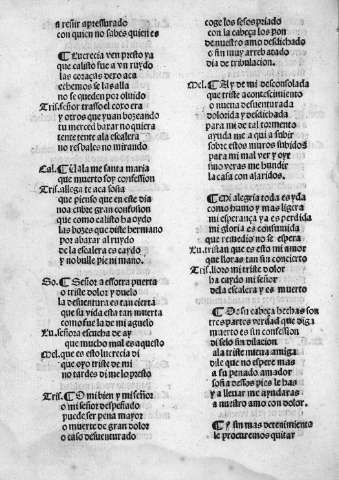 a reñir apressurado
con quien no sabes quien es
¶ Lucrecia ven presto ya
que calisto fue a vn ruydo
las coraças dero aca
echemos se las alla
no se queden por oluido
Tris. señor trasso el coxo era
y otros que yuan bozeando
tu merced barar no quiera
tente tente ala escalera
no resbales no mirando
Cal. ¶ Uala me santa maria
que muerto soy confession
Tris. allega te aca sosia
que pienso que en este dia
nos cubre gran confusion
que como calisto ha oydo
las bozes que diste hermano
por abarar al ruydo
de la escalera es caydo
y no bulle pie ni mano.
So. ¶ Señor a essotra puerta
o triste dolor y duelo
la desuentura es tan cierta
que su vida esta tan muerta
como fue la de mi aguelo
Lu. señora escucha de ay
que mucho mal es aquesto
Mel. que es esto lucrecia di
que oyo triste de mi
no tardes di melo presto
Tris. ¶ O mi bien y mi señor
o mi señor despeñado
puede ser pena mayor
o muerte de gran dolor
o caso desuenturado
coge los sesos priado
con la cabeça los pon
de nuestro amo desdichado
o sin muy arrebatado
dia de tribulacion.
Mel. ¶ Ay de mi desconsolada
que triste acontescimiento
o nueua desuenturada
dolorida y desdichada
para mi de tal tormento
ayuda me a qui a subir
sobre estos muros subidos
para mi mal ver y oyr
sino veras me hundir
la casa con alaridos.
¶ Mi alegria toda es yda
como humo y mas ligera
mi esperança ya es perdida
mi gloria es consumida
que remedio no se espera
Lu. tristan que es esto mi amor
que lloras tan sin concierto
Tris. lloro mi triste dolor
ha caydo mi señor
dela escalera y es muerto
¶ De su cabeça hechas son
tres partes verdad que diga
muerto es sin confession
di selo sin dilacion
ala triste nueua amiga
dile que no espere mas
a su penado amador
sosia dessos pies le has
y a lleuar me ayudaras
a nuestro amo con dolor.
¶ Y sin mas detenimiento
le procuremos quitar